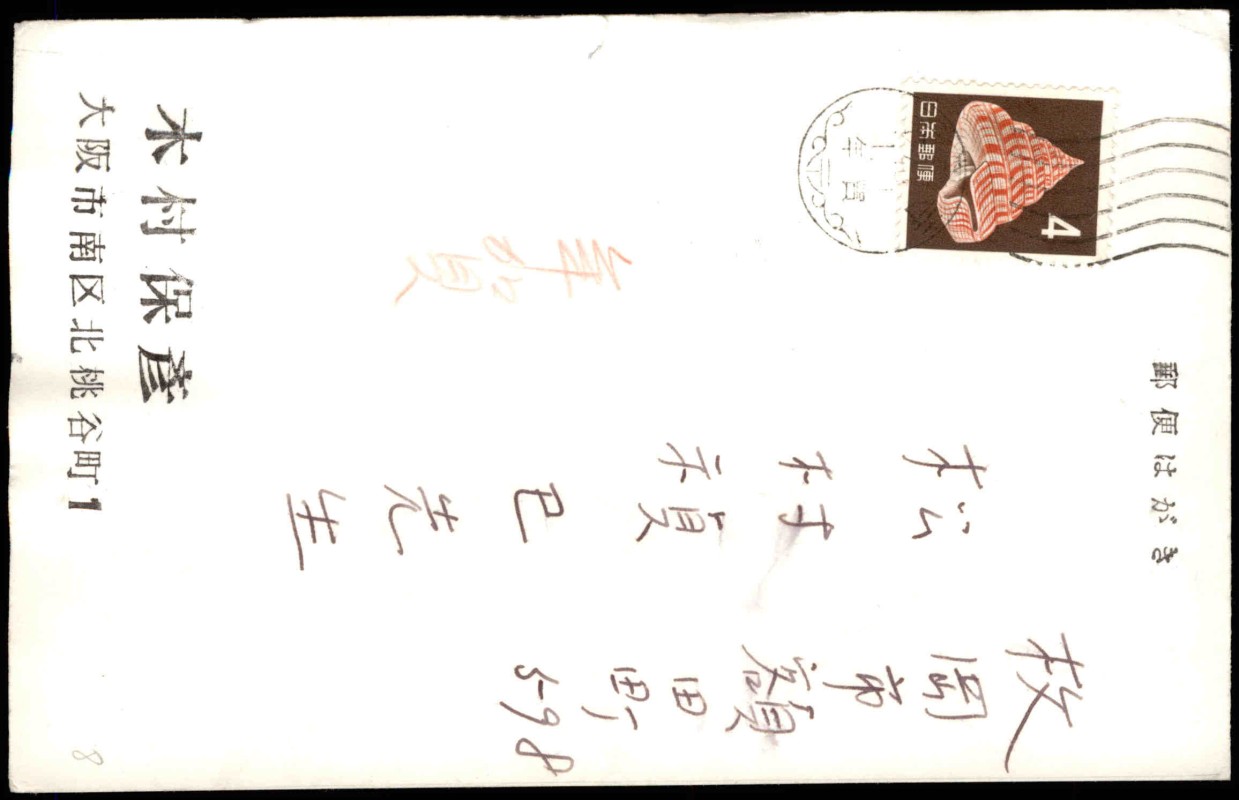 郵便はがき
日本郵便
4
年賀
枚岡市額田町5-98
松村禎巳先生
年賀
木村保彦
大阪市南区北桃谷町1
8